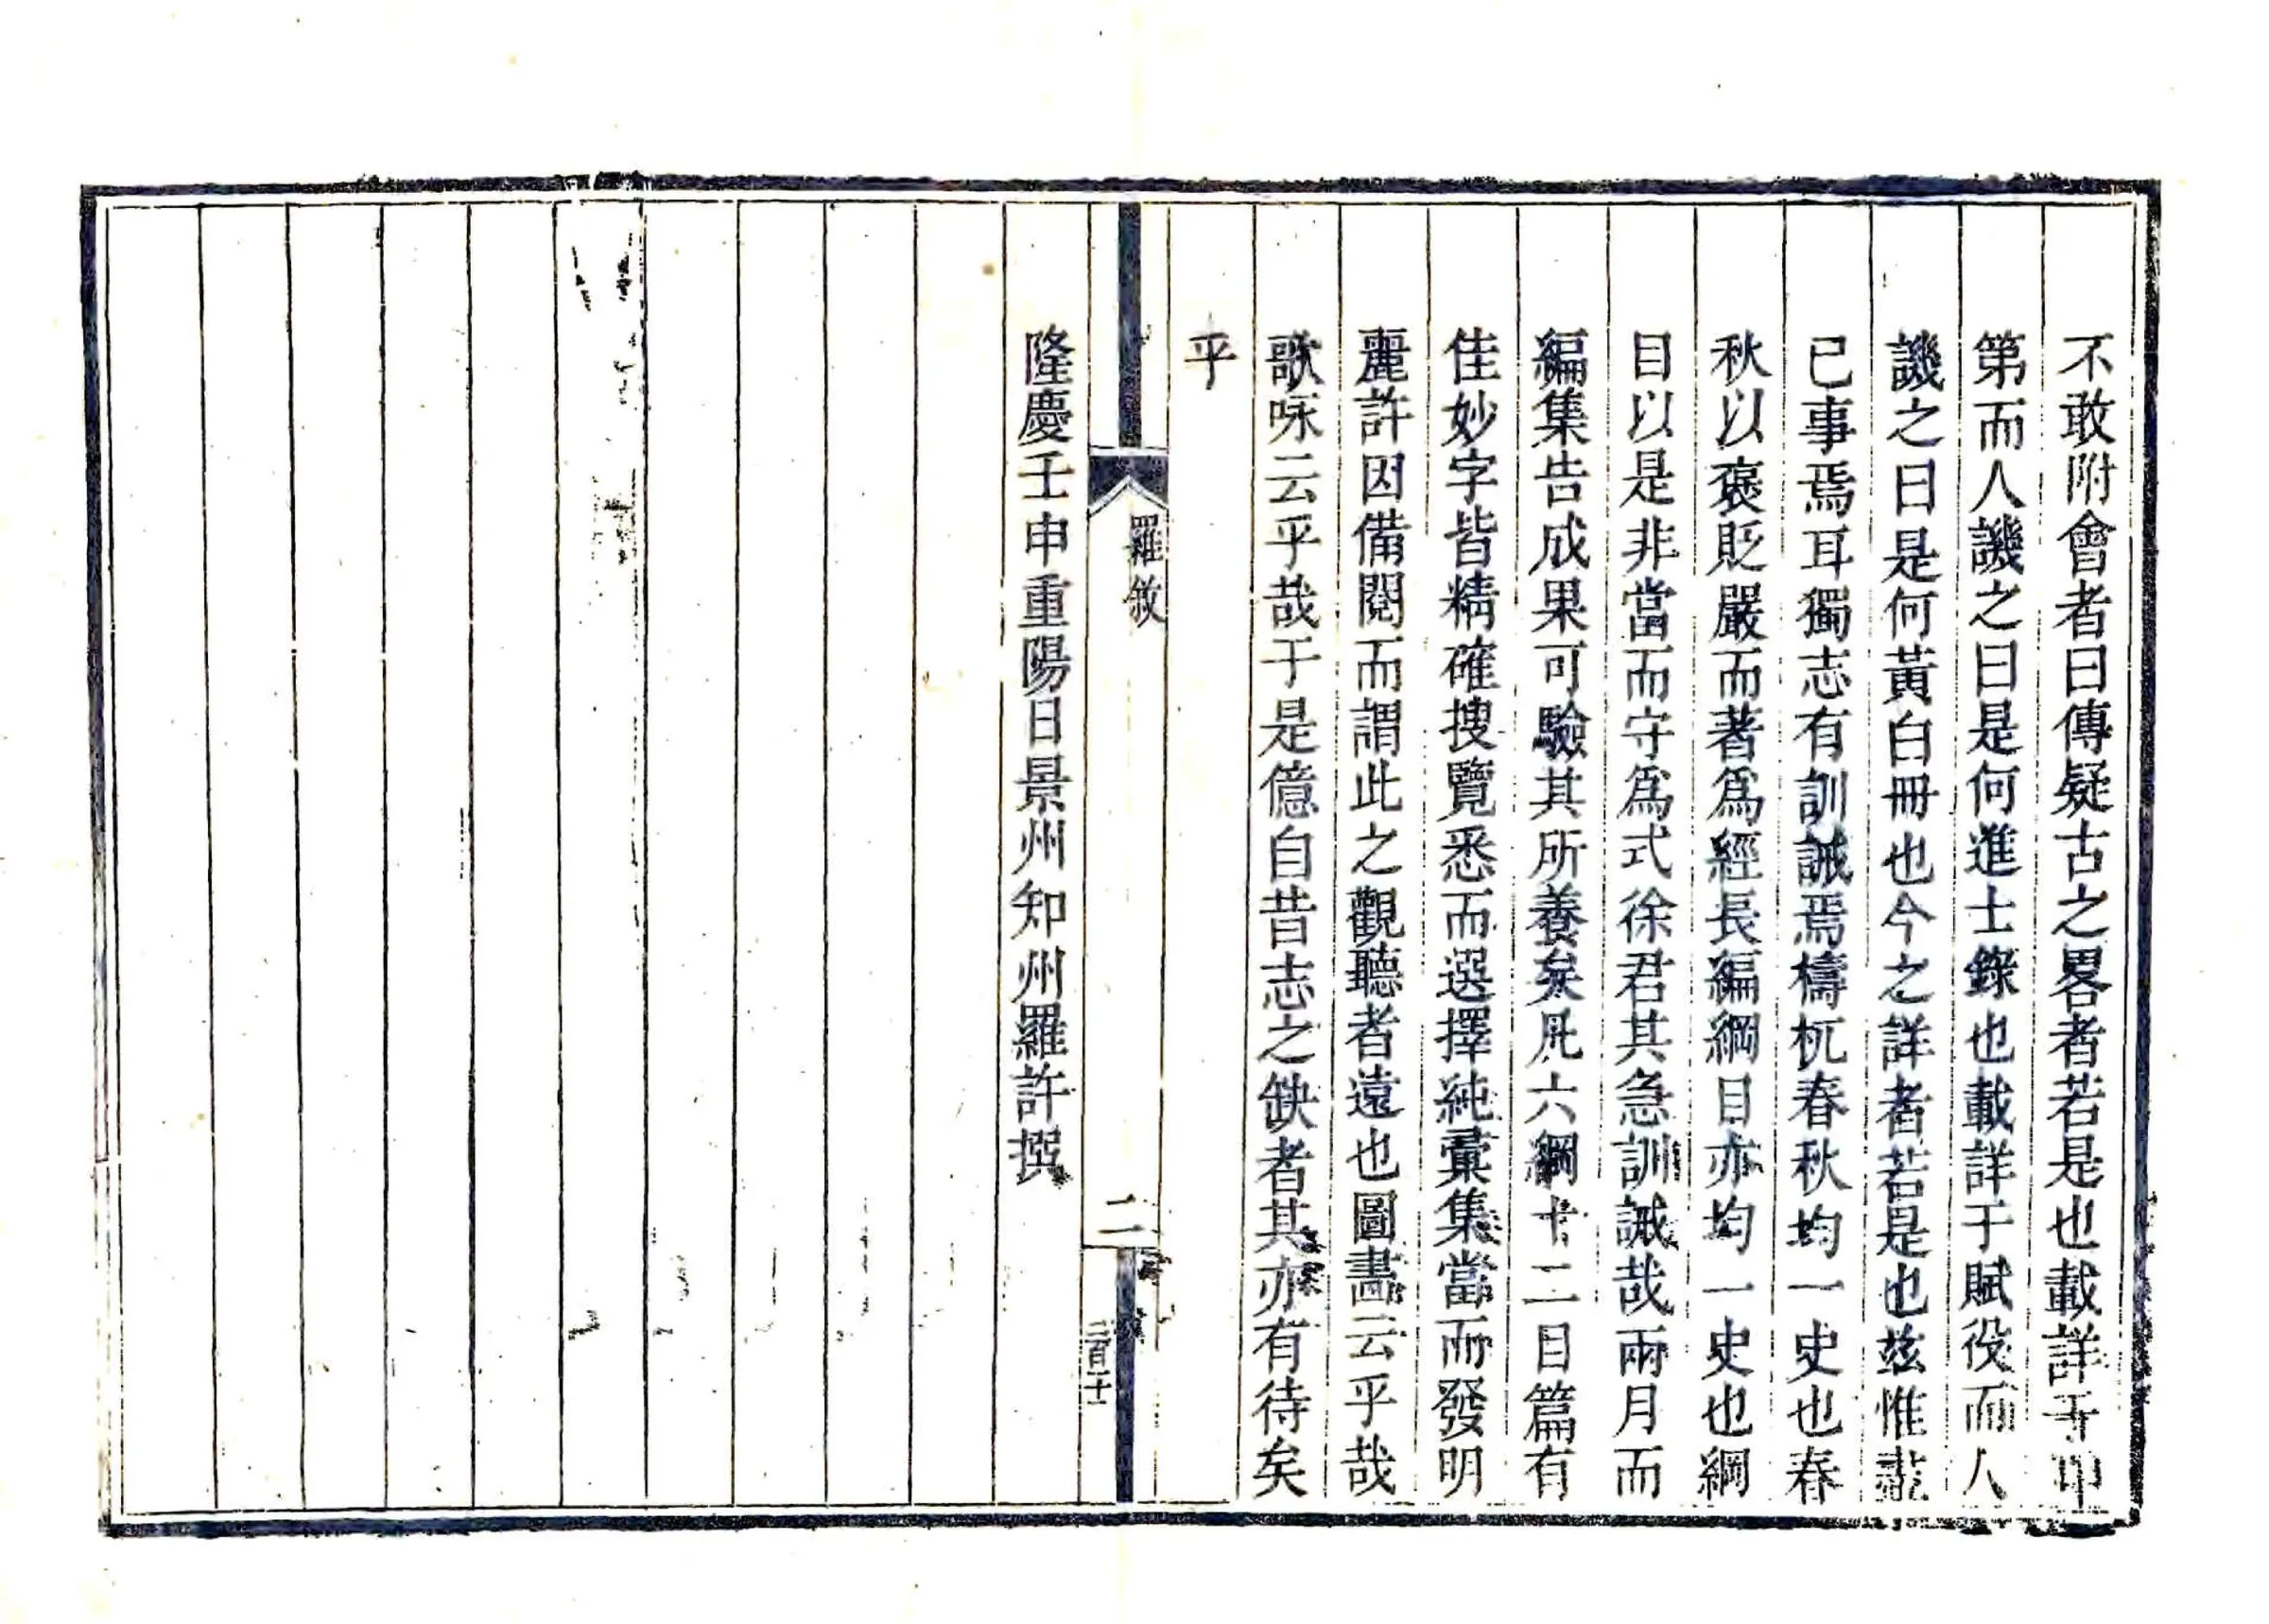 不敢附會者曰傳疑古之畧者若是也載詳于甲
第而人譏之曰是何進士錄也載詳于賦役而人
譏之曰是何黃白冊也今之詳者若是也兹惟
已事焉耳獨志有訓誡焉檮杌春秋均一史也春
秋以褒貶嚴而著爲經長編綱目亦均一史也綱
目以是非當而守爲式徐君其急訓誡哉兩月而
編集告成果可驗其所養矣凡六綱十二目篇有
佳妙字皆精確搜覽悉而選擇純彙集當而發明
麗許因備閱而謂此之觀聽者遠也圖畵云乎哉
歌咏云乎哉于是億自昔志之缺者其亦有待矣
乎
羅敘
二
二百二十
隆慶壬申重陽日景州知州羅許撰